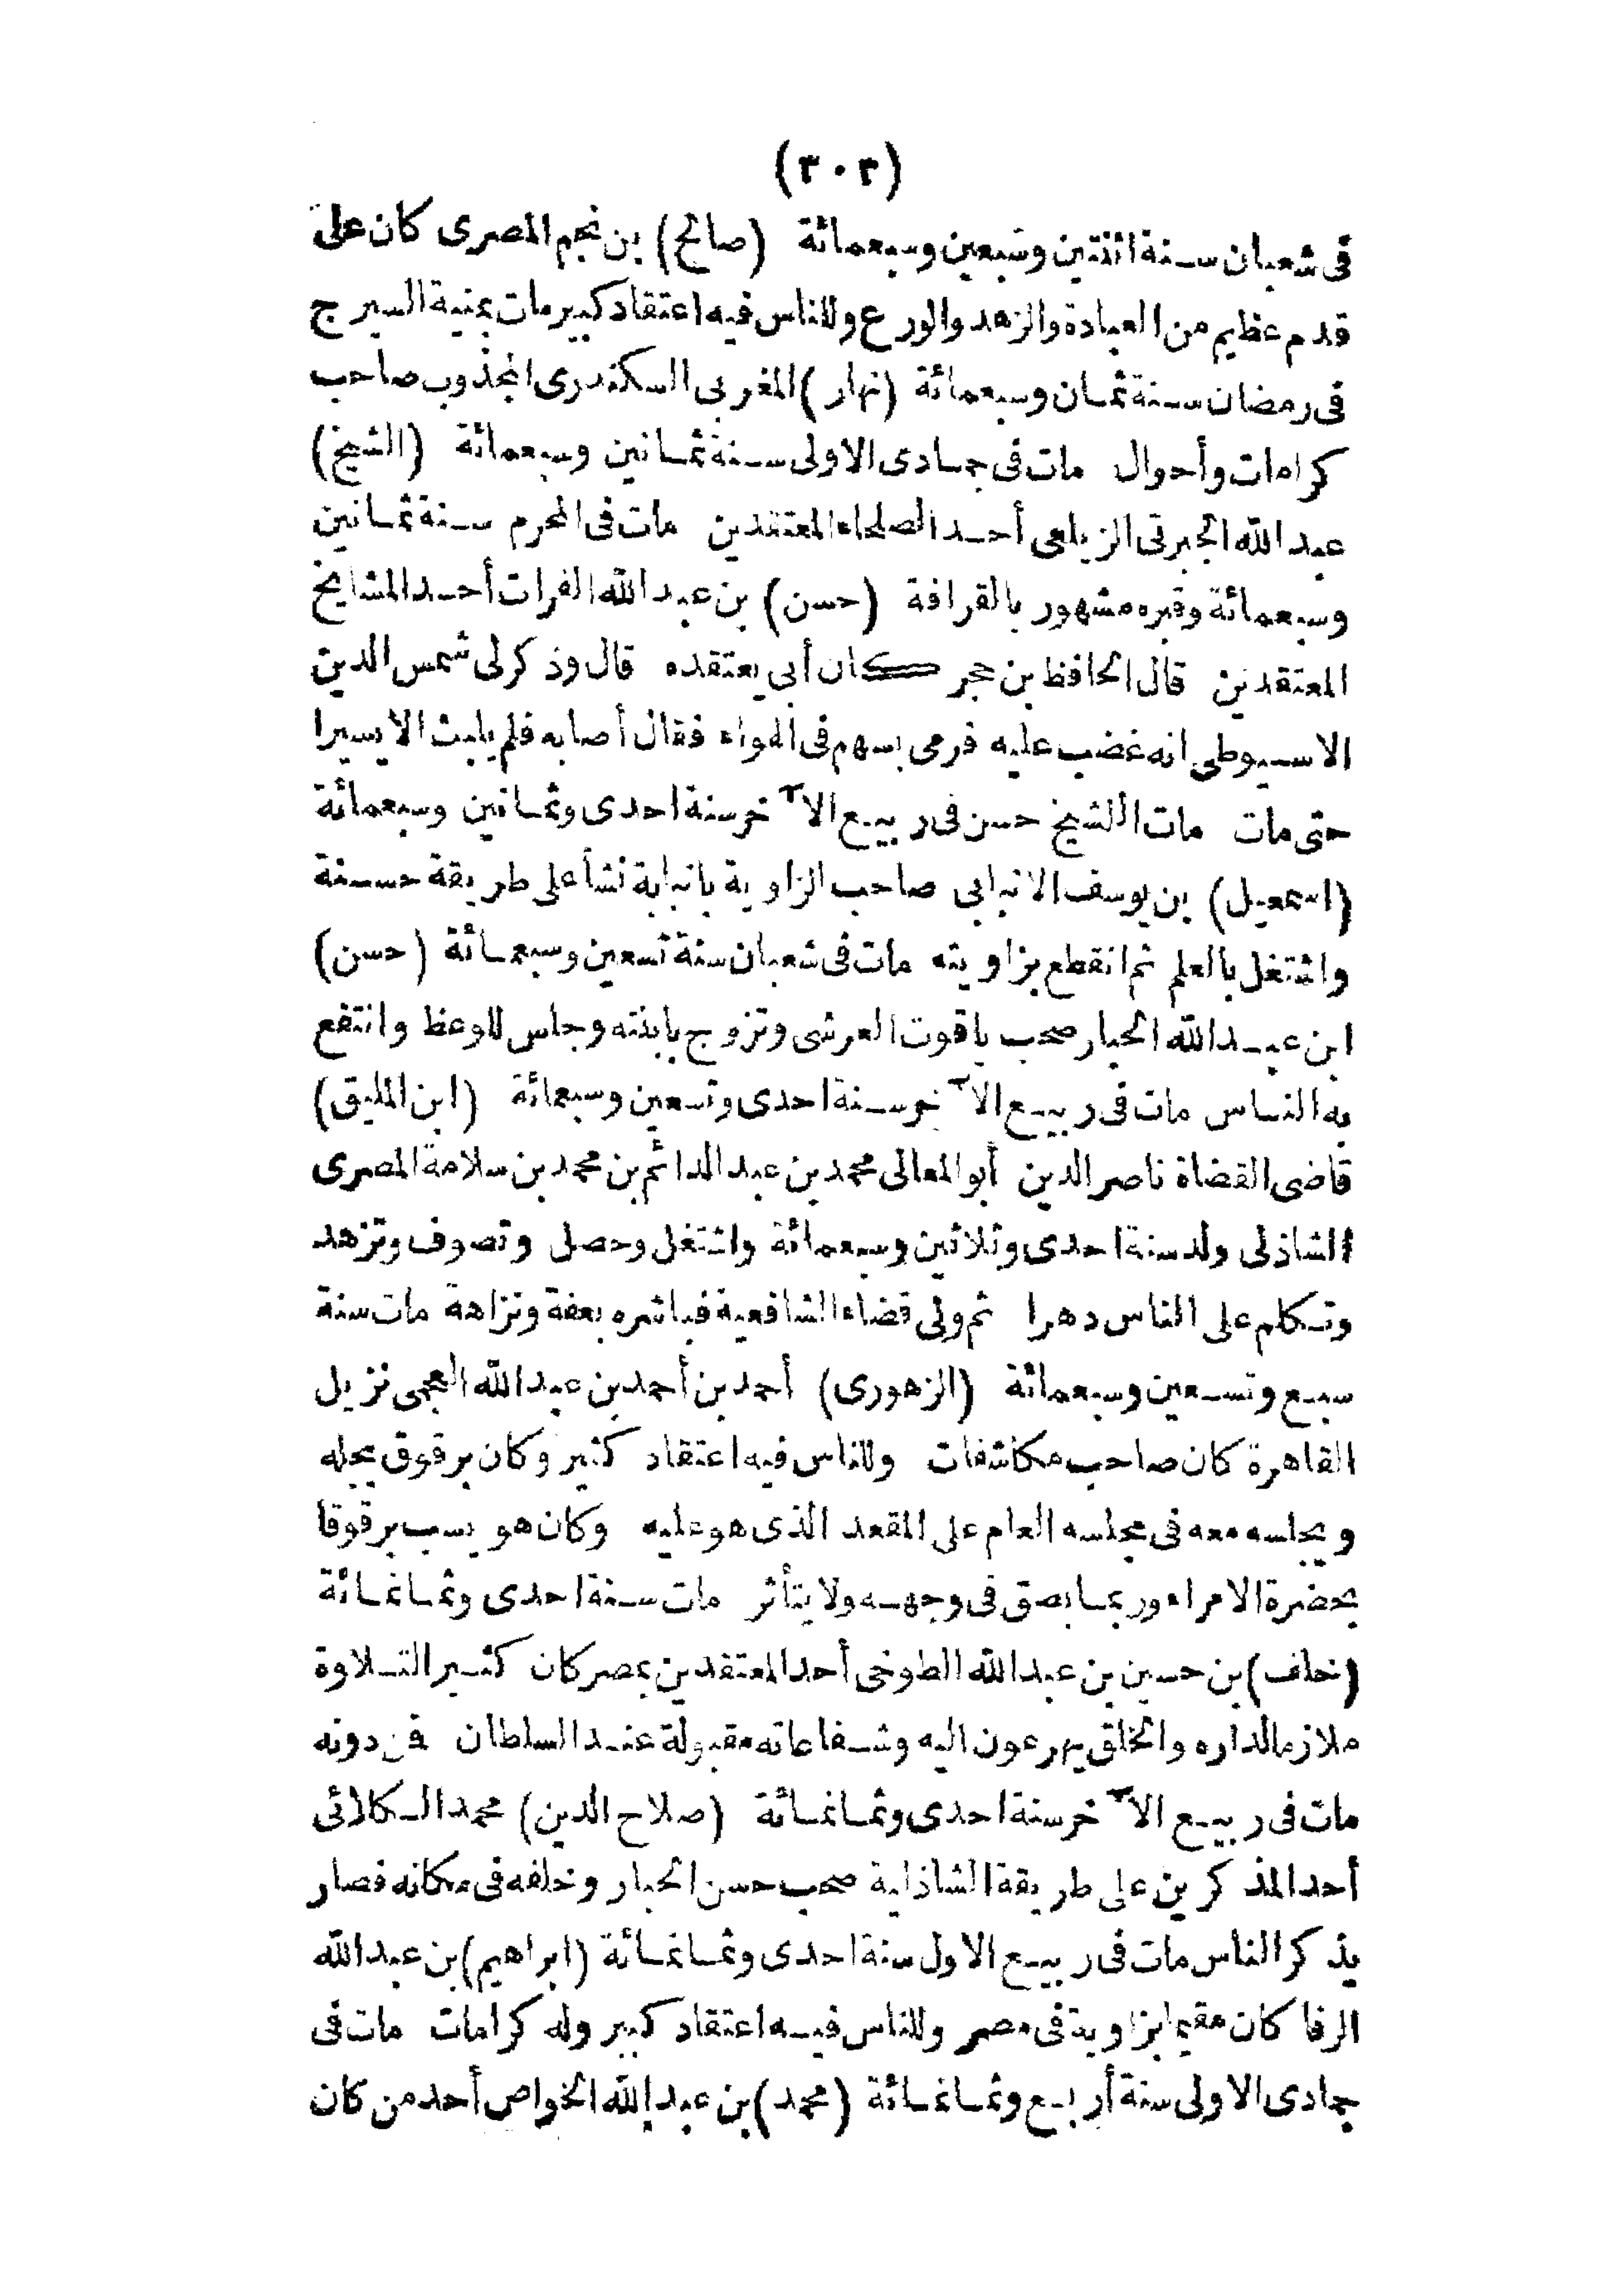 (٣٠٣)
فى شعبان سنة اثنتين وسبعين وسبعمائة (صالح) بن نجم المصرى كان على
قدم عظيم من العبادة والزهد والورع وللناس فيه اعتقاد كبير مات بمنية السيرج
فى رمضان سنة ثمان وسبعمائة (نهار) المغربى السكندرى المجذوب صاحب
كرامات وأحوال مات فى جمادى الاولى سنة ثمانين وسبعمائة (الشيخ)
عبد الله الجبرتى الزيلعى أحد الصلحاء المعتقدين مات فى المحرم سنة ثمانين
وسبعمائة وقبره مشهور بالقرافة (حسن) بن عبد الله الفرات أحد المشايخ
المعتقدين قال الحافظ بن حجر كان أبى يعتقده قال وذكر لى شمس الدين
الاسيوطى انه غضب عليه فرمى بسهم فى الهواء فقال أصابه فلم يلبث الا يسيرا
حتى مات مات الشيخ حسن فى ربيع الآخر سنة احدى وثمانين وسبعمائة
(اسمعيل) بن يوسف الانبابى صاحب الزاوية بانبابة نشأ على طريقة حسنة
واشتغل بالعلم ثم انقطع بزاويته مات فى شعبان سنة تسعين وسبعمائة (حسن)
ابن عبد الله الحبار صحب ياقوت العرشى وتزوج بابنته وجلس للوعظ وانتفع
به الناس مات فى ربيع الآخر سنة احدى وتسعين وسبعمائة (ابن المليق)
قاضى القضاة ناصر الدين أبو المعالى محمد بن عبد الدائم بن محمد بن سلامة المصرى
الشاذلى ولد سنة احدى وثلاثين وسبعمائة واشتغل وحصل وتصوف وتزهد
وتكلم على الناس دهرا ثم ولى قضاء الشافعية فباشره بعفة ونزاهة مات سنة
سبع وتسعين وسبعمائة (الزهورى) أحمد بن أحمد بن عبد الله العجمى نزيل
القاهرة كان صاحب مكاشفات وللناس فيه اعتقاد كثير وكان برقوق يجله
ويجلسه معه فى مجلسه العام على المقعد الذى هو عليه وكان هو يسب برقوقا
بحضرة الامراء وربما بصق فى وجهه ولا يتأثر مات سنة احدى وثمانمائة
(خلف) بن حسين بن عبد الله الطوخى أحد المعتقدين بمصر كان كثير التلاوة
ملازما لداره والخلق يهرعون اليه وشفاعاته مقبولة عند السلطان فمن دونه
مات فى ربيع الآخر سنة احدى وثمانمائة (صلاح الدين) محمد الكلائى
أحد المذكرين على طريقة الشاذلية صحب حسن الحبار وخلفه فى مكانه فصار
يذكر الناس مات فى ربيع الاول سنة احدى وثمانمائة (ابراهيم) بن عبد الله
الرفا كان مقيما بزاوية فى مصر وللناس فيه اعتقاد كبير وله كرامات مات فى
جمادى الاولى سنة أربع وثمانمائة (محمد) بن عبد الله الخواص أحد من كان